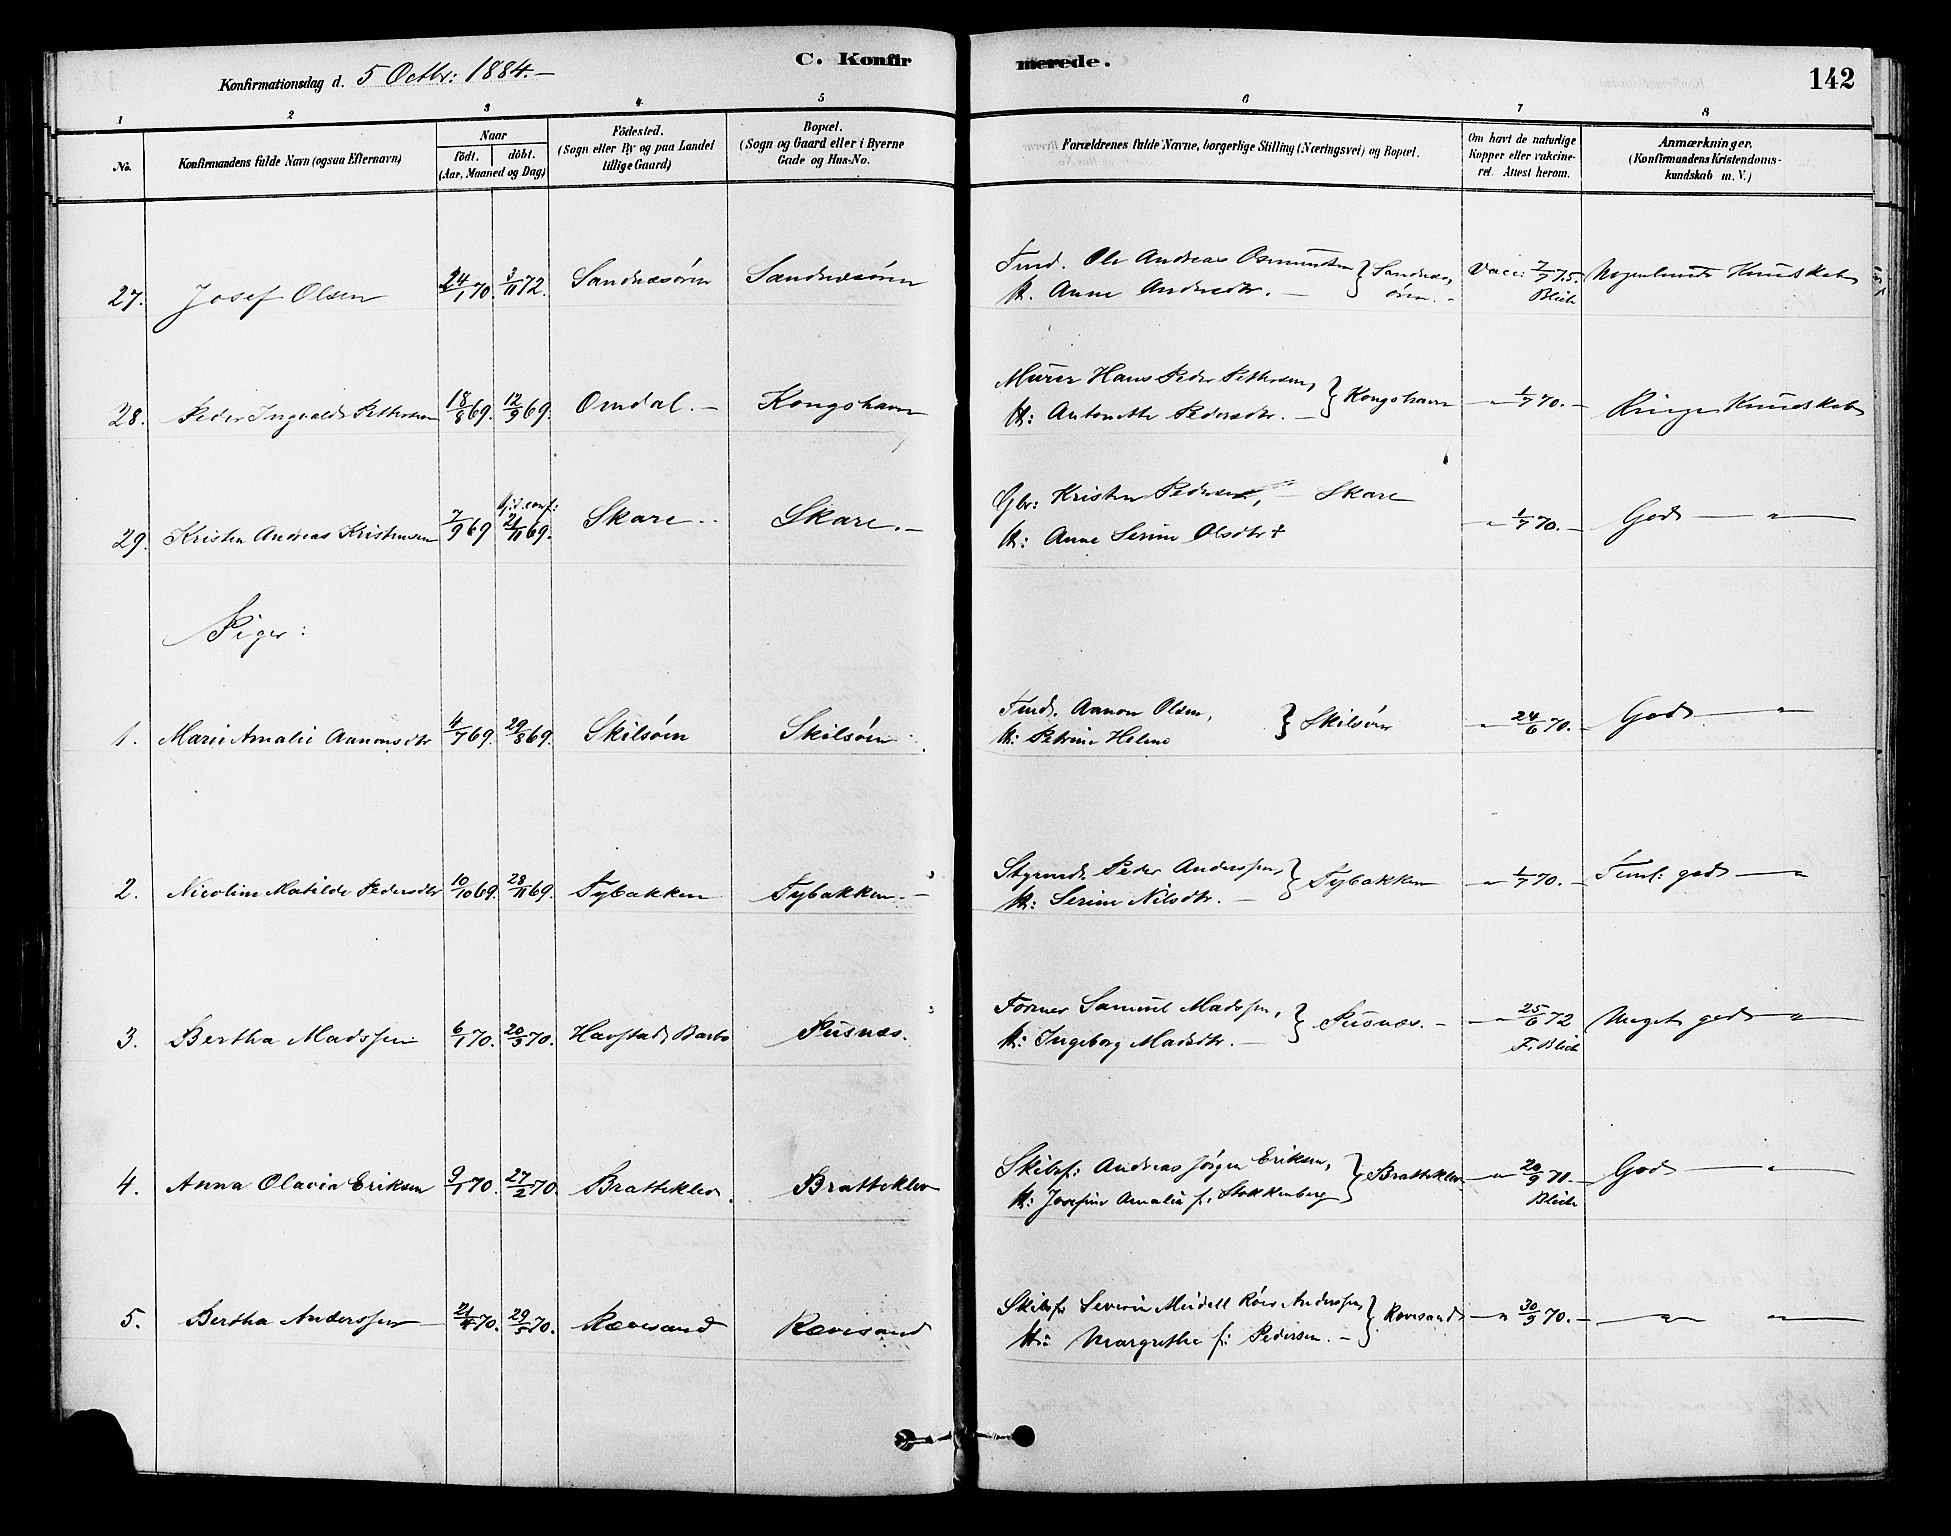 C. Konfirmerede.
142
Konfirmationsdag d. 5 Octbr: 1884.-
1 2 3 4 5 6 7 8
No. Konfirmandens fulde Navn (ogsaa Efternavn) Naar födt. döbt. (Aar, Maaned og Dag) Födested. (Sogn eller By og paa Landet tillige Gaard) Bopæl. (Sogn og Gaard eller i Byerne Gade og Hus-No. Forældrenes fulde Navne, borgerlige Stilling (Næringsvei) og Bopæl. Om havt de naturlige Kopper eller vakcineret. Attest herom. Anmærkninger. (Konfirmandens Kristendomskundskab m. V.)
27. Josef Olsen 24/1 70. 3/11 72. Sandnæsören Sandnæsören Ole Andreas Osmundsen Sandnæs,
k. Anne Andersdtr. - ören. - Vacc: 7/7 75. Blich Nogenlunde Kundskab
28. Peder Ingvald Pettersen 18/8 69. 12/9 69. Omdal. - Kongshavn Murer Hans Peder Pettersen,
k: Antonette Pedersdtr. - Kongshavn - " 1/7 70. - Ringe Kundskab
29. Kristen Andreas Kristensen 7/9 69 hjd. conf: 21/11 69. Skare - Skare. - Gbr: Kristen Pedersen, - Skare
k: Anne Serine Olsdtr + - " 1/7 70. - God - " -
Piger:
1. Marie Amalie Aanonsdtr 4/7 69. 29/8 69. Skilsöen Skilsöen Aanon Olsen,
k: Petrine Helene Skilsöen - " 24/6 70. - God - " -
2. Nicoline Matilde Pedersdtr 10/10 69. 28/11 69. Tybakken Tybakken. - Styrmd. Peder Anderssen,
k: Serine Nilsdtr. - Tybakken - " 1/7 70. - Teml: god - " -
3. Bertha Madssen 6/1 70. 20/3 70. Havstad, Barbo Pusnæs. Former Samuel Madssen,
k: Ingeborg Madsdtr. - Pusnæs. - - " 25/6 72 F. Blich Meget god - " -
4. Anna Olavia Eriksen 9/1 70. 27/2 70. Bratteklev. Bratteklev Skibsf: Andreas Jörgen Eriksen,
k: Josefine Amalia f. Stokkenberg Bratteklev - " 20/9 71. - Blich God - " -
5. Bertha Anderssen 21/4 70. 29/5 70. Rævesand Rævesand Skibsf. Severin Meidell Röer Anderssen,
k: Margrethe f: Pedersen. - Rævesand - " 30/9 70. - - " - " -